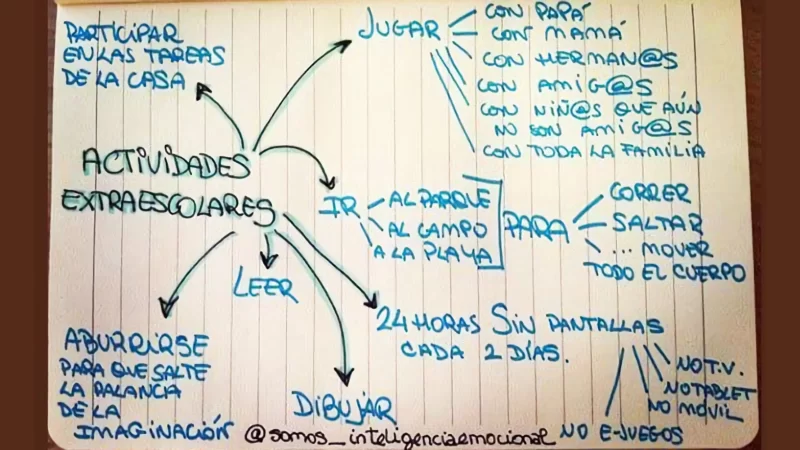 PARTICIPAR
EN LAS TAREAS
DE LA CASA
JUGAR
CON PAPÁ
CON MAMÁ
CON HERMAN@S
CON AMIG@S
CON NIÑ@S QUE AÚN
NO SON AMIG@S
CON TODA LA FAMILIA
ACTIVIDADES
EXTRAESCOLARES
IR
AL PARQUE
AL CAMPO
A LA PLAYA
PARA
CORRER
SALTAR
... MOVER
TODO EL CUERPO
LEER
24 HORAS SIN PANTALLAS
CADA 2 DÍAS.
NO T.V.
NO TABLET
NO MÓVIL
NO E-JUEGOS
ABURRIRSE
PARA QUE SALTE
LA PALANCA
DE LA
IMAGINACIÓN
DIBUJAR
@somos_inteligenciaemocional